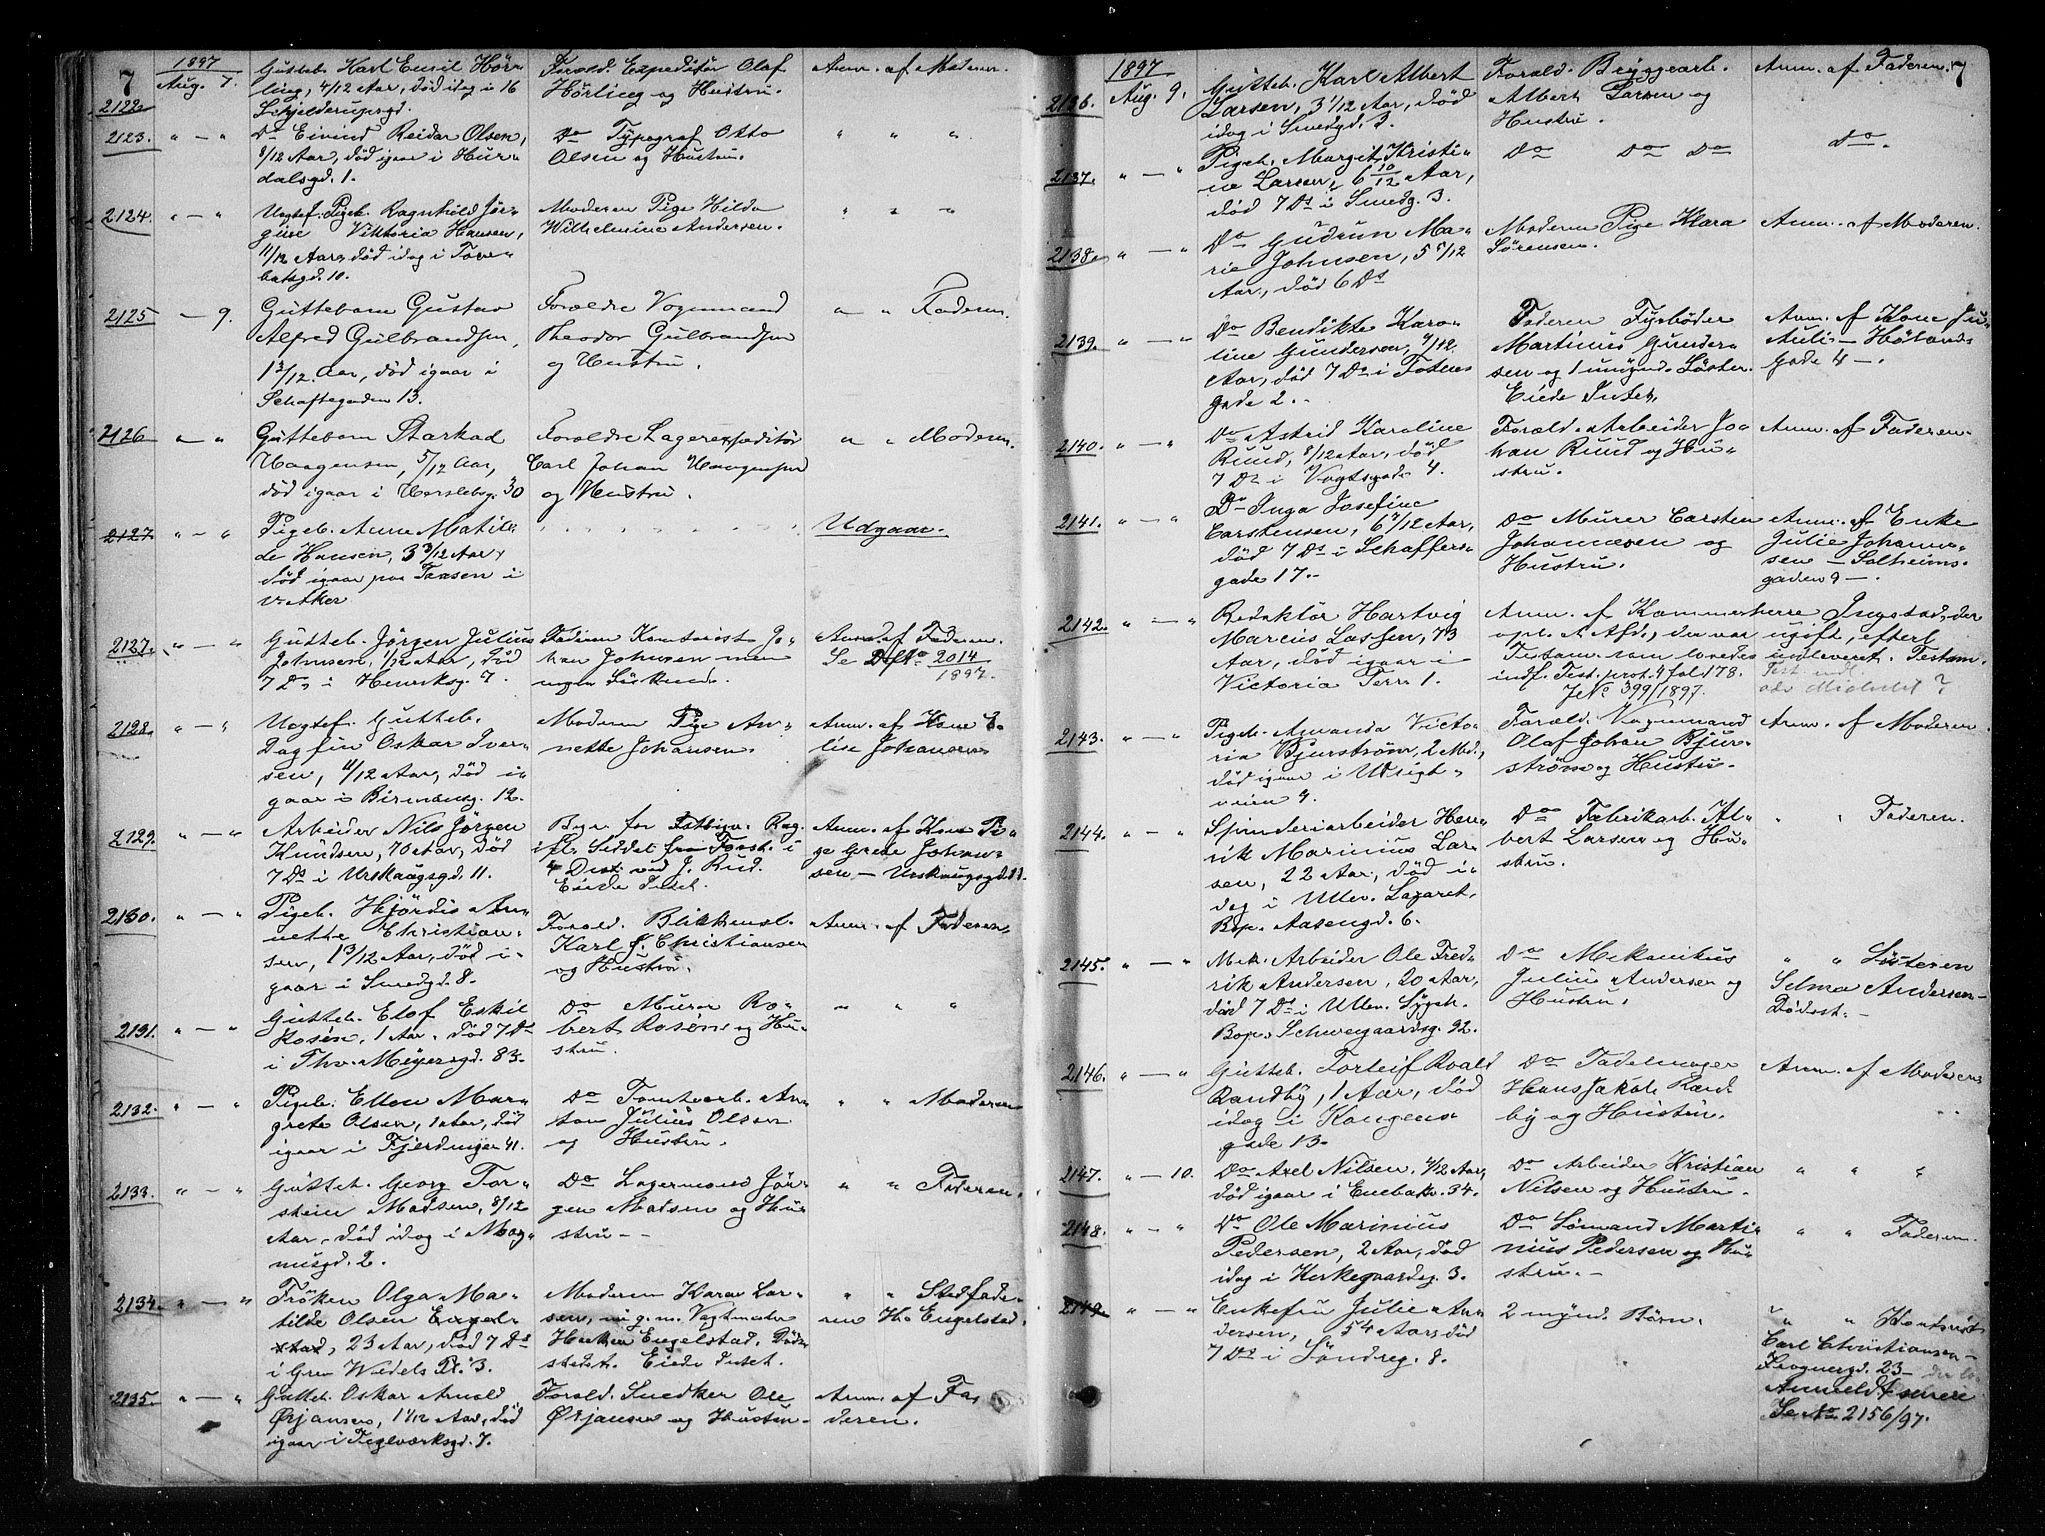 7
1897
2122. Aug. 7. Gutteb. Karl Emil Hör-
ling, 4/12 Aar, död idag i 16
Schjelderupsgd.
Foræld. Expeditör Olaf
Hörling og Hustru.
Anm. af Moderen.
2123. " — " Do Eivind Reidar Olsen,
8/12 Aar, död igaar i Hur-
dalsgd. 1.
Do Typograf Otto
Olsen og Hustru.
" " "
2124. " — " Uægtef. Pigeb. Ragnhild Jör-
gine Viktoria Hansen,
11/12 Aar, död idag i Tove-
batsgd. 10.
Moderen Pige Hilda
Wilhelmine Andersen.
" " "
2125 — 9. Guttebarn Gustav
Alfred Gulbrandsen,
1 3/12 Aar, död igaar i
Schaftegaden 13.
Forældre Vognmand
Theodor Gulbrandsen
og Hustru.
" " Faderen.
2126 " " Guttebarn Starkad
Haagensen, 5/12 Aar,
död igaar i Herslebsg. 30
Forældre Lagerexpeditör
Carl Johan Haagensen
og Hustru.
" " Moderen.
2127 " — " Pigeb. Anna Matil-
de Hansen, 3 3/12 Aar,
död igaar paa Taasen i
V. Aker
" " " " " "
Udgaar.
2127. " — " Gutteb. Jörgen Julius
Johnsen, 1/12 Aar, död
7 Ds i Henriksg. 7.
Faderen Kontorist Jo-
han Johnsen men
ingen Söskende.
Anm. af Faderen.
Se No 2014/1897.
2128. " — " Uægtef. Gutteb.
Dagfin Oskar Iver-
sen, 11/12 Aar, död i-
gaar i Birmensg. 12.
Moderen Pige An-
nette Johansen.
Anm. af Kone E-
lise Johansen.
2129. " — " Arbeider Nils Jörgen
Knudsen, 70 Aar, död
7 Ds i Urskaugsgd. 11.
Begr. for Fattigv. Reg.
ifl. Seddel fra Forst. i
4 Distr. ved J. Rud.
Eiede Intet.
Anm. af Kone Pi-
ge Grede Johan-
sen — Urskaugsgd. 11.
2130. " — " Pigeb. Hjördis An-
nette Christian-
sen, 1 3/12 Aar, död i-
gaar i Smedgd. 8.
Foræld. Blikkensl.
Karl J. Christiansen
og Hustru.
Anm. af Faderen
2131. " — " Gutteb. Elof Eskil
Rosén, 1 Aar, död 7 Ds
i Thv. Meyersgd. 83.
Do Murer Ro-
bert Rosén og Hu-
stru.
" " "
2132. " — " Pigeb. Ellen Mar-
grete Olsen, 1 Aar, död
igaar i Fjerdingen 41.
Do Tomtearb. An-
ton Julius Olsen
og Hustru.
" " Moderen
2133. " — " Gutteb. Georg Tor-
stein Madsen, 8/12
Aar, död idag i Mag-
nusgd. 2.
Do Lagermand Jör-
gen Madsen og Hu-
stru.—
" " Faderen.
2134. " — " Fröken Olga Ma-
tilde Olsen Engel-
stad, 23 Aar, död 7 Ds
i Grev Wedels Pl. 3.
Moderen Kara Lar-
sen, nu g. m. Vagtmester
Engelstad, Döds-
stedet. Eiede Intet.
" " Stedfade-
ren H. Engelstad.
2135. " — " Gutteb. Oskar Arnold
Örjansen, 1 1/12 Aar, död
igaar i Teglverksgd. 7.
Foræld. Snedker Ole
Örjansen og Hustru.
Anm. af Fa-
deren.
7
1897
2136. Aug. 9. Gutteb. Karl Albert
Larsen, 3 1/12 Aar, död
idag i Smedgd. 3.
Foræld. Bryggearb.
Albert Larsen og
Hustru.
Anm. af Faderen.
2137. " — " Pigeb. Margit Kristi-
ne Larsen, 6 10/12 Aar,
död 7 Ds i Smedg. 3.
Do Do Do
Do.
2138. " — " Do Gudrun Ma-
rie Johnsen, 5 5/12
Aar, död 6 Ds
Moderen Pige Klara
Sörensen.
Anm. af Moderen.
2139. " — " Do Bendikte Karo-
line Gundersen, 9/12
Aar, död 7 Ds i Totens
gade 2.
Faderen Fyrböder
Martinus Gunder-
sen og 1 umynd. Söster.
Eiede Intet.
Anm. af Kone Ju-
— Hölands
Gade 4 —.
2140. " — " Do Astrid Karoline
Ruud, 8/12 Aar, död
7 Ds i Vogtsgade 4.
Foræld. Arbeider Jo-
han Ruud og Hu-
stru.
Anm. af Faderen.
2141. " — " Do Inga Josefine
Carstensen, 6 7/12 Aar,
död 7 Ds i Schaffers-
gade 17.
Do Murer Carsten
Johannesen og
Hustru.
Anm. af Enke
Julie Johanne-
sen — Solheims-
gaden 9 —.
2142. " — " Redaktör Hartvig
Marcus Lassen, 73
Aar, död igaar i
Victoria Terr. 1.
Anm. af Kammerherre Ingstad, der
opl. at Afd., der var ugift, efterl.
Testam. som lovedes indleveret. Testam.
indf. Test. prot. 4 fol 78.
JNo 399/1897.
2143. " — " Pigeb. Amanda Victo-
ria Bjurström, 2 Md.,
död igaar i Udsigt-
veien 4.
Foræld. Vognmand
Olaf Johan Bjur-
ström og Hustru.
Anm. af Moderen
2144. " — " Spinderiarbeider Hen-
rik Marinius Lar-
sen, 22 Aar, död i-
dag i Ullev. Lazaret.
Bop. Aasengd. 6.
Do Fabrikarb. Al-
bert Larsen og Hu-
stru.
" " Faderen.
2145. " — " Mek. Arbeider Ole Fred-
rik Andersen, 20 Aar,
död 7 Ds i Ullev. Sygeh.
Bop. Schweigaardsg. 92.
Do Mekanikus
Julius Andersen og
Hustru.
" " Sösteren
Selma Andersen —
Dödsst.—
2146. " — " Gutteb. Torleif Roald
Randby, 1 Aar, död
idag i Kongens-
gade 13.
Do Sadelmager
Hans Jakob Rand-
by og Hustru.
Anm. af Moderen
2147. " — 10. Do Axel Nilsen, 4/12 Aar,
död igaar i Enebakv. 34.
Do Arbeider Kristian
Nilsen og Hustru.
" " "
2148. " — " Do Ole Marinius
Pedersen, 2 Aar, död
idag i Herkegaardsg. 3.
Do Sömand Marti-
nius Pedersen og Hu-
stru.—
" " Faderen.
2149. " — " Enkefru Julie An-
dersen, 54 Aar, död
7 Ds i Söndreg. 8.
2 mynd. Börn.
" " Kontorist
Carl Christiansen —
Frognergd. 23 —
Anmeldt senere
Se No 2156/97.